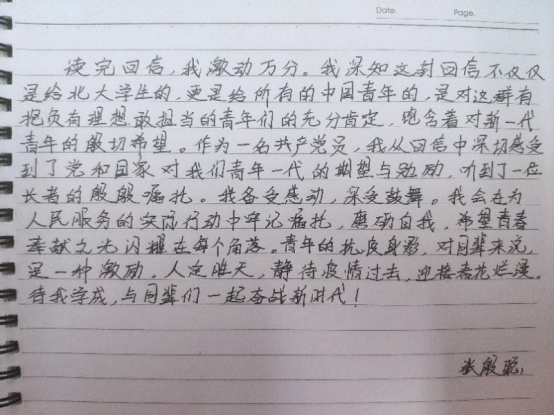 Date. Page.
读完回信,我激动万分。我深知这封回信不仅仅
是给北大学生的,更是给所有的中国青年的,是对这群有
抱负有理想敢担当的青年们的充分肯定,饱含着对新一代
青年的殷切希望。作为一名共产党员,我从回信中深切感受
到了党和国家对我们青年一代的期望与勉励,听到了一位
长者的殷殷嘱托。我备受感动,深受鼓舞。我会在为
人民服务的实际行动中牢记嘱托,磨砺自我,希望青春
奉献之光闪耀在每个角落。青年的抗疫身影,对同辈来说,
是一种激励。人定胜天,静待疫情过去,迎接春花烂漫。
待我学成,与同辈们一起奋战新时代!
张殷聪